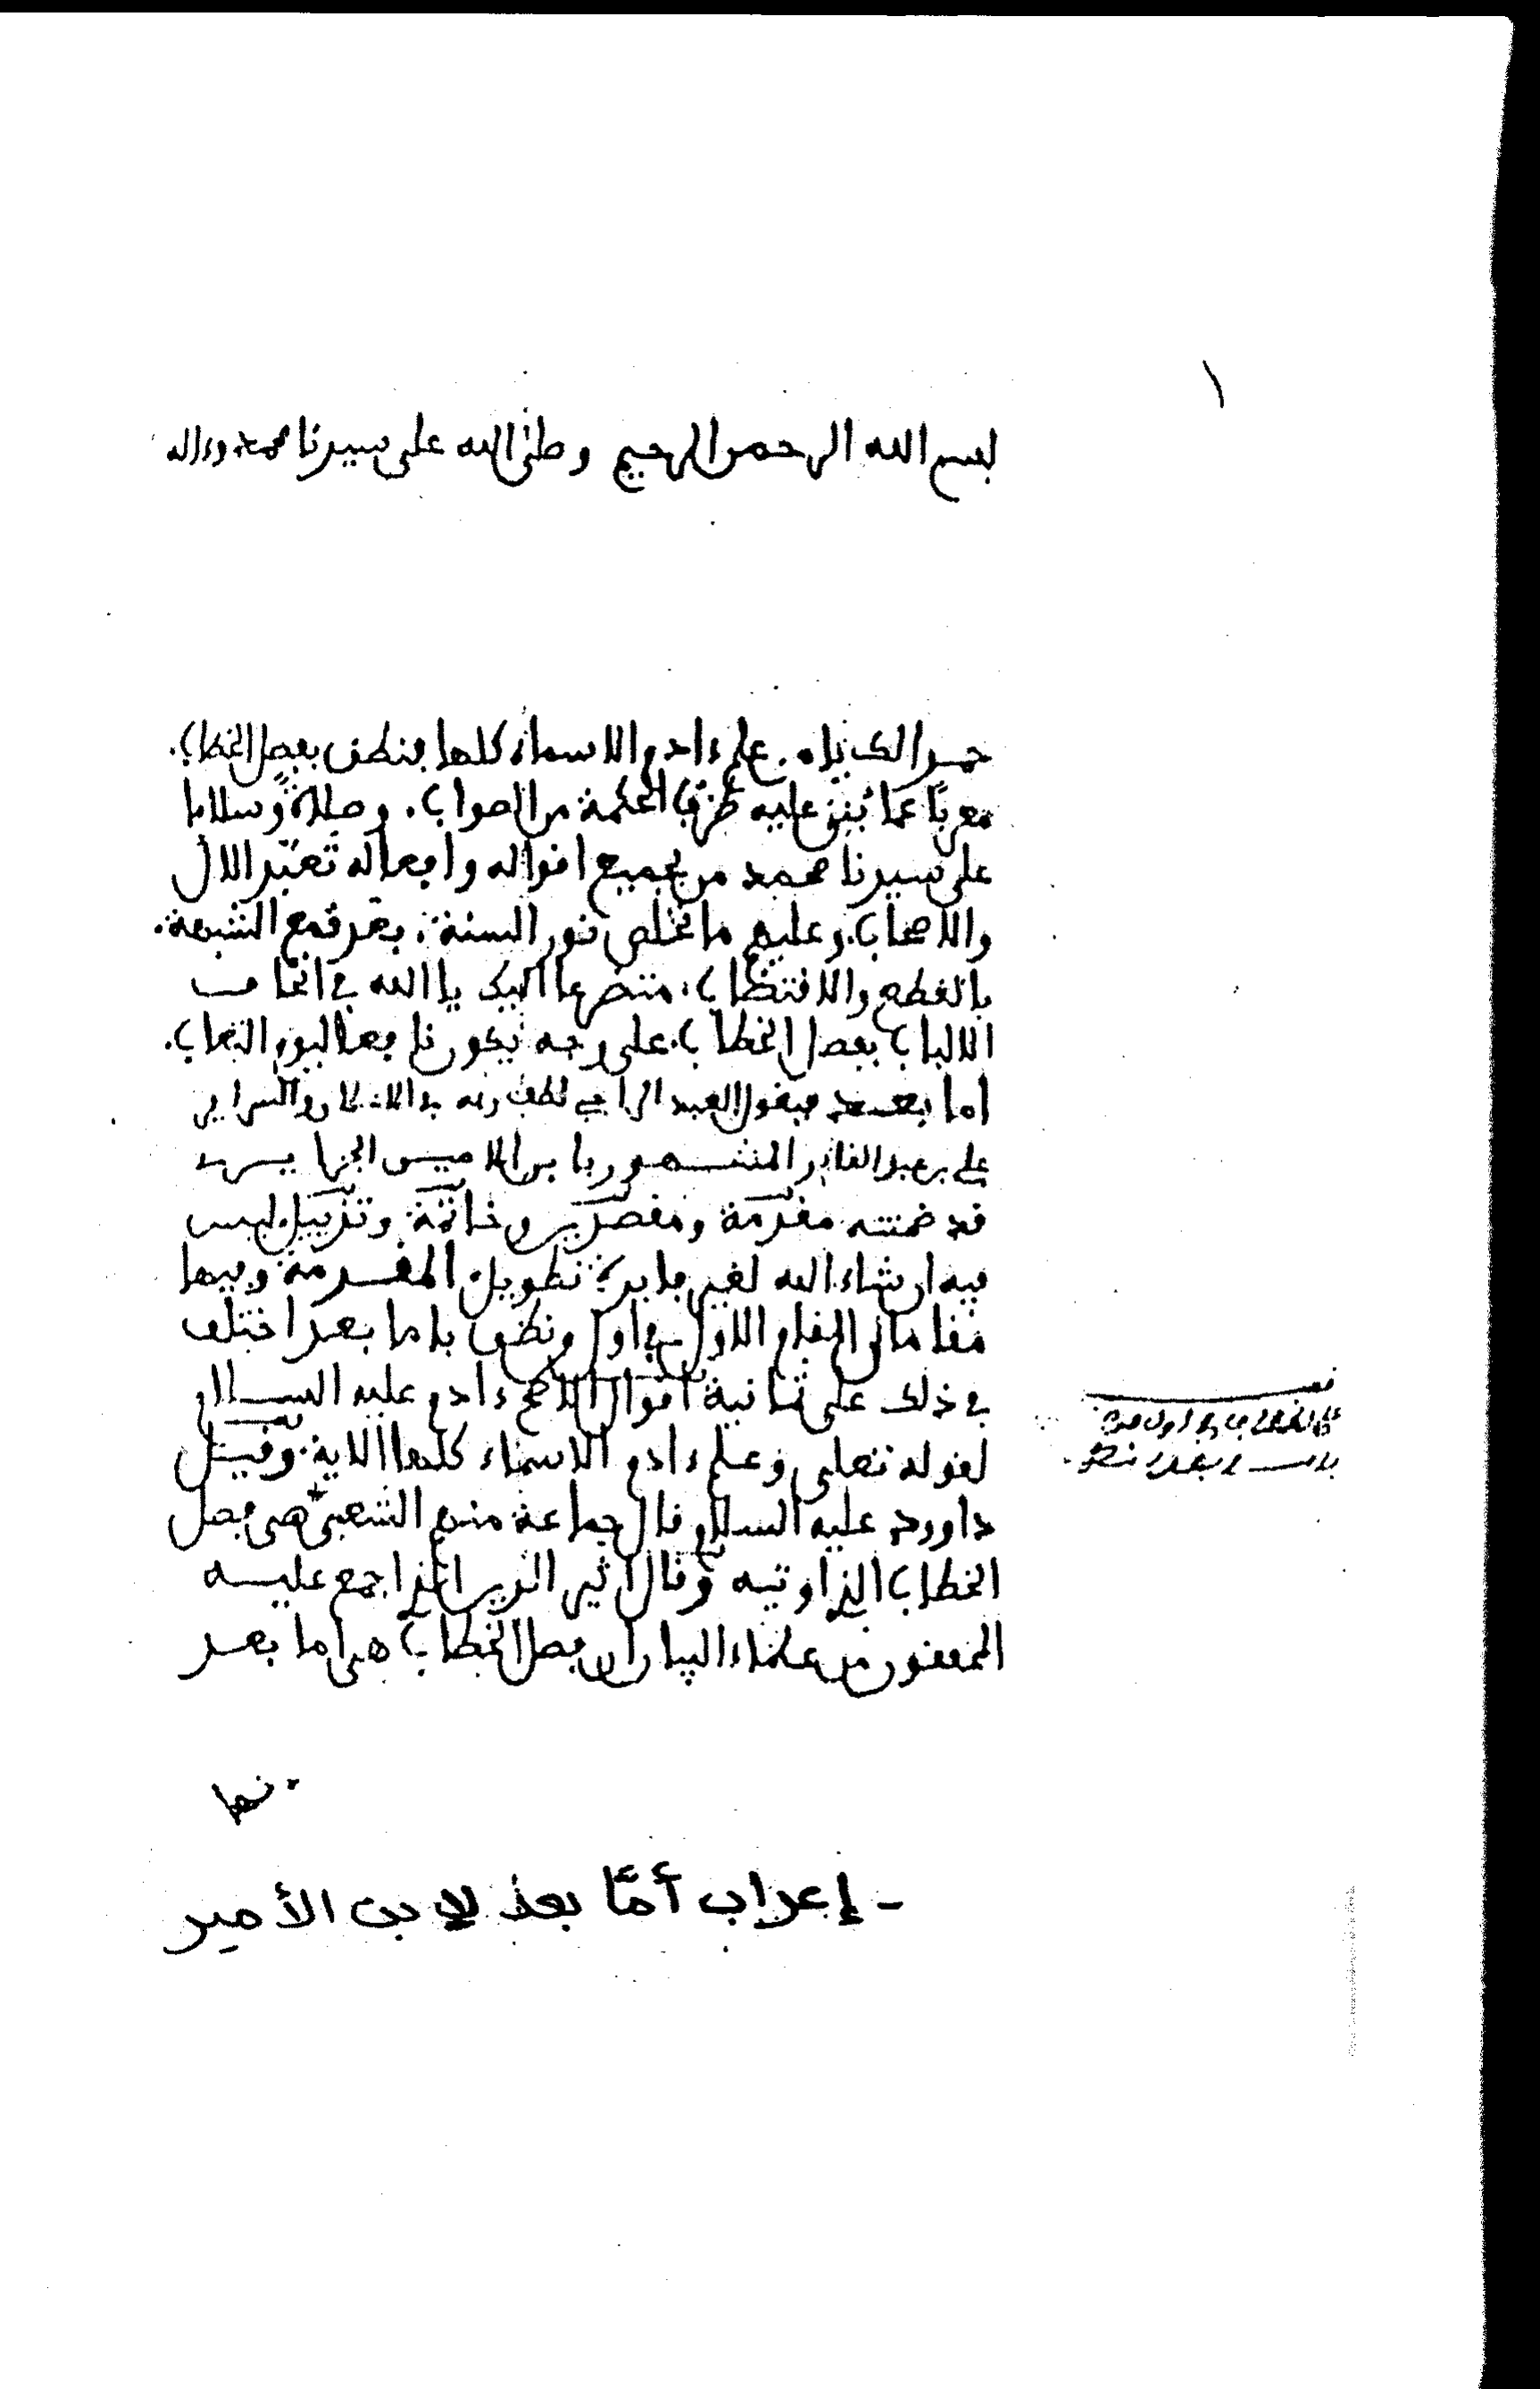 ١
بسم الله الرحمن الرحيم وصلى الله على سيدنا محمد وءاله
حمدا لك يا من علم ءادم الاسماء كلها فنطق بفصل الخطاب.
معربا عما يبنى عليه طرق الحكمة من الصواب. وصلاة وسلاما
على سيدنا محمد من بجميع افواله وافعاله تعبد الال
والاصحاب. وعليهم ما تخلص نور السنة. بعد قمع الشبهة.
بالقطع والاقتضاب. متضرعا اليك يا الله في اتحاف
الالباب بفصل الخطاب. على وجه يكون نافعا ليوم المئاب.
اما بعد فيقول العبد الراجي لطف ربه
علي بن عبد القادر المشهور بابن الامين الجزايري
قد ضمنته مقدمة ومقصدين وخاتمة وتذييل ليس
فيه ان شاء الله لغير فايدة تطويل. المقدمة وفيها
مقامان المقام الاول في اول من نطق باما بعد اختلف
في ذلك على ثمانية اقوال الاصح ءادم عليه السلام
لقوله تعلى وعلم ءادم الاسماء كلها الاية. وقيل
داوود عليه السلام قال جماعة منهم الشعبي هي فصل
الخطاب الذي اوتيه وقال اثير الدين الذي اجمع عليه
المحققون من علماء البيان ان فصل الخطاب هي اما بعد
- إعراب أمّا بعد لابن الأمير